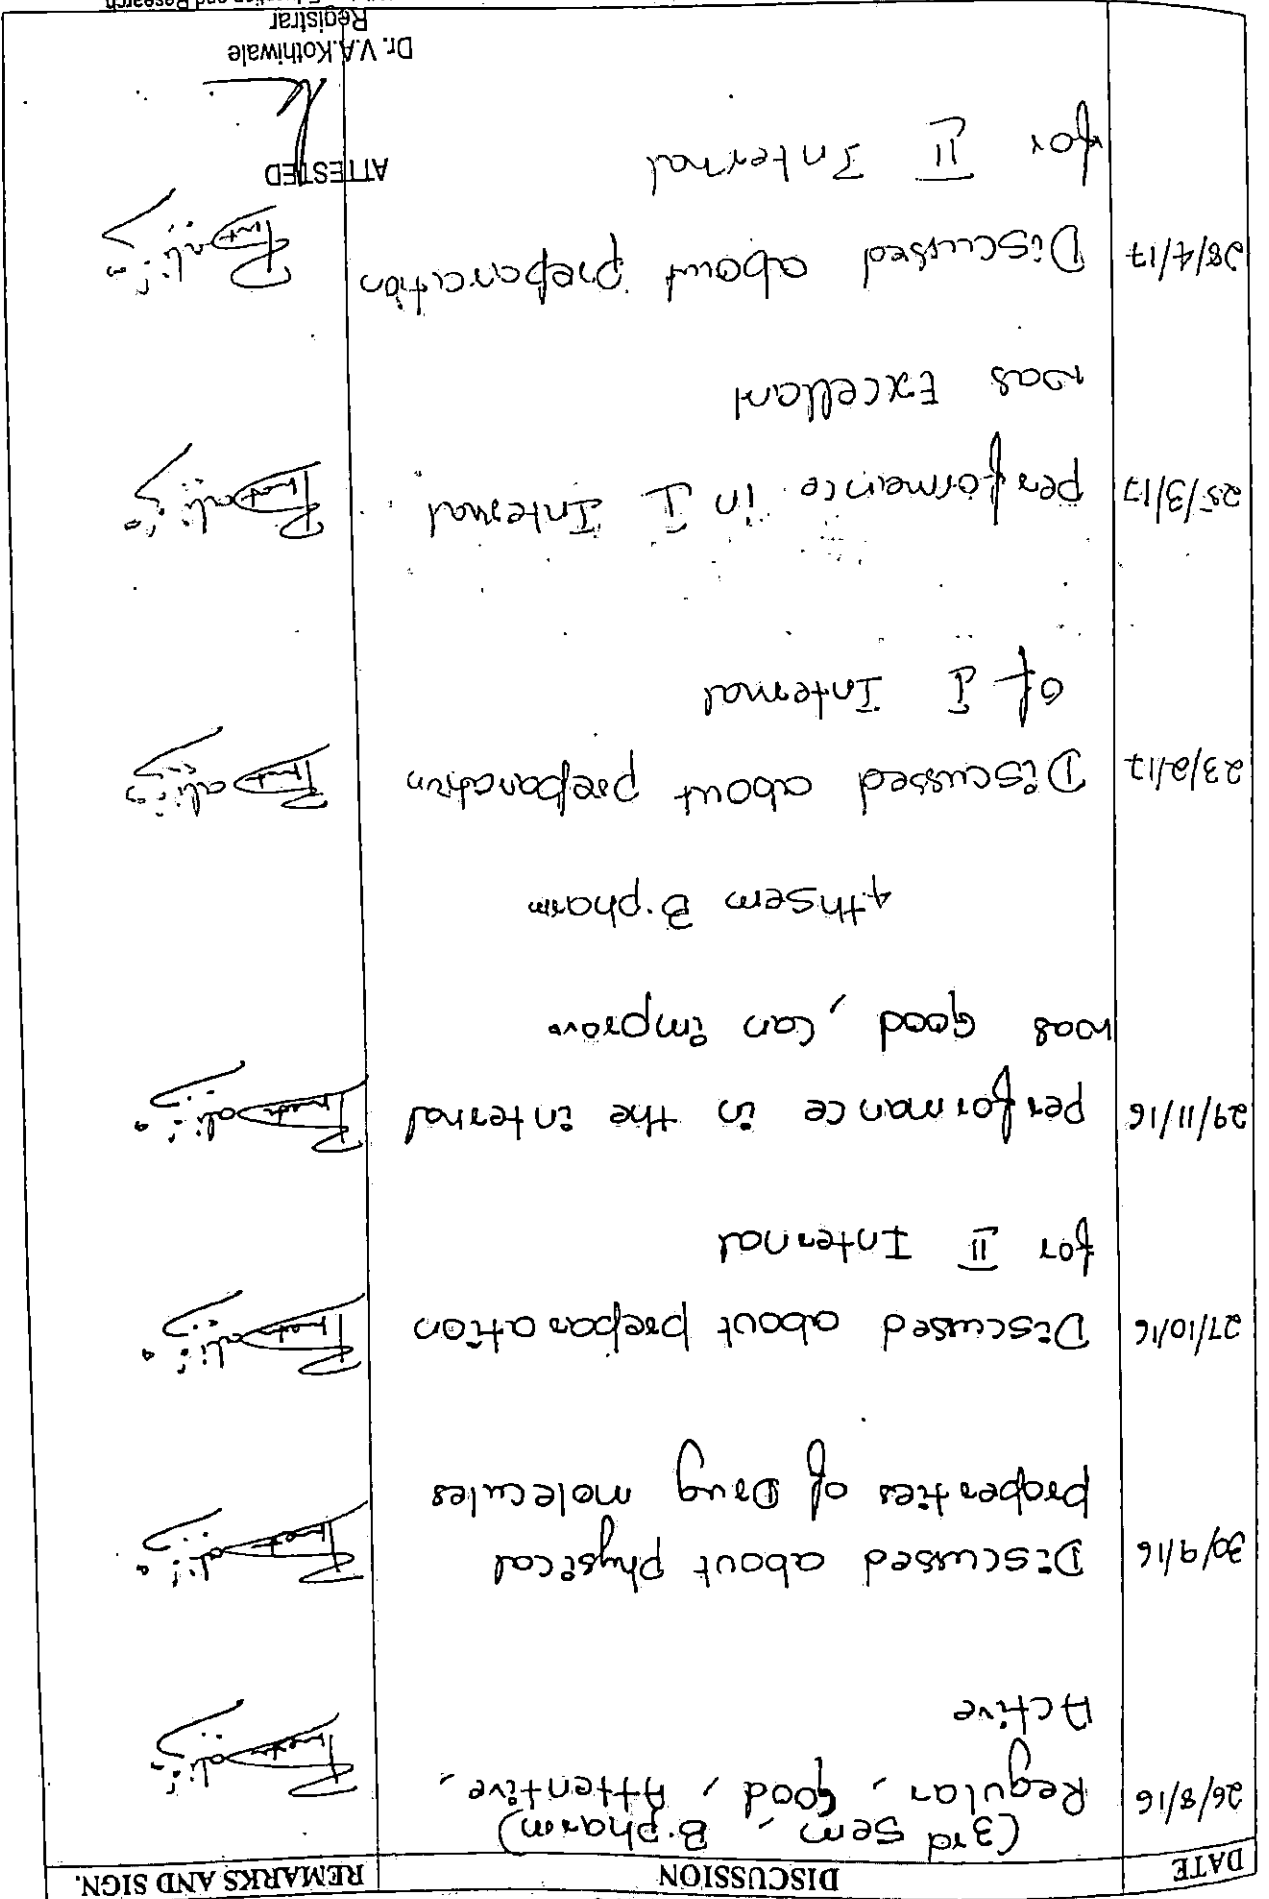 DATE DISCUSSION REMARKS AND SIGN.
(3rd Sem, B.pharm)
26/8/16 Regular, Good, Attentive,
Active
30/9/16 Discussed about physical
properties of Drug molecules
27/10/16 Discussed about preparation
for II Internal
29/11/16 performance in the internal
was Good, can improve
4th Sem B.pharm
23/2/17 Discussed about preparation
of I Internal
25/3/17 performance in I Internal
was Excellant
28/4/17 Discussed about preparation
for II Internal
ATTESTED
Dr. V.A.Kothiwale
Registrar